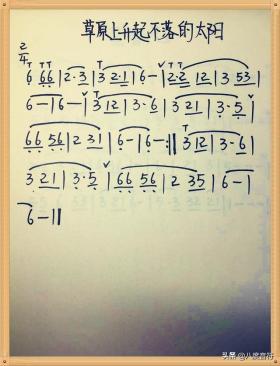 草原上升起不落的太阳
2/4
6 66 | 2·3 | 3 2·1 | 6 - | 2·2 12 | 3 53 |
6 - | 6 - | 3 12 | 3·6 | 3 21 | 3·5 |
66 56 | 2 31 | 6 - | 6 - :|| 3 12 | 3·6 |
3 21 | 3·5 | 66 56 | 2 35 | 6 - |
6 - ||
头条 @八度音符